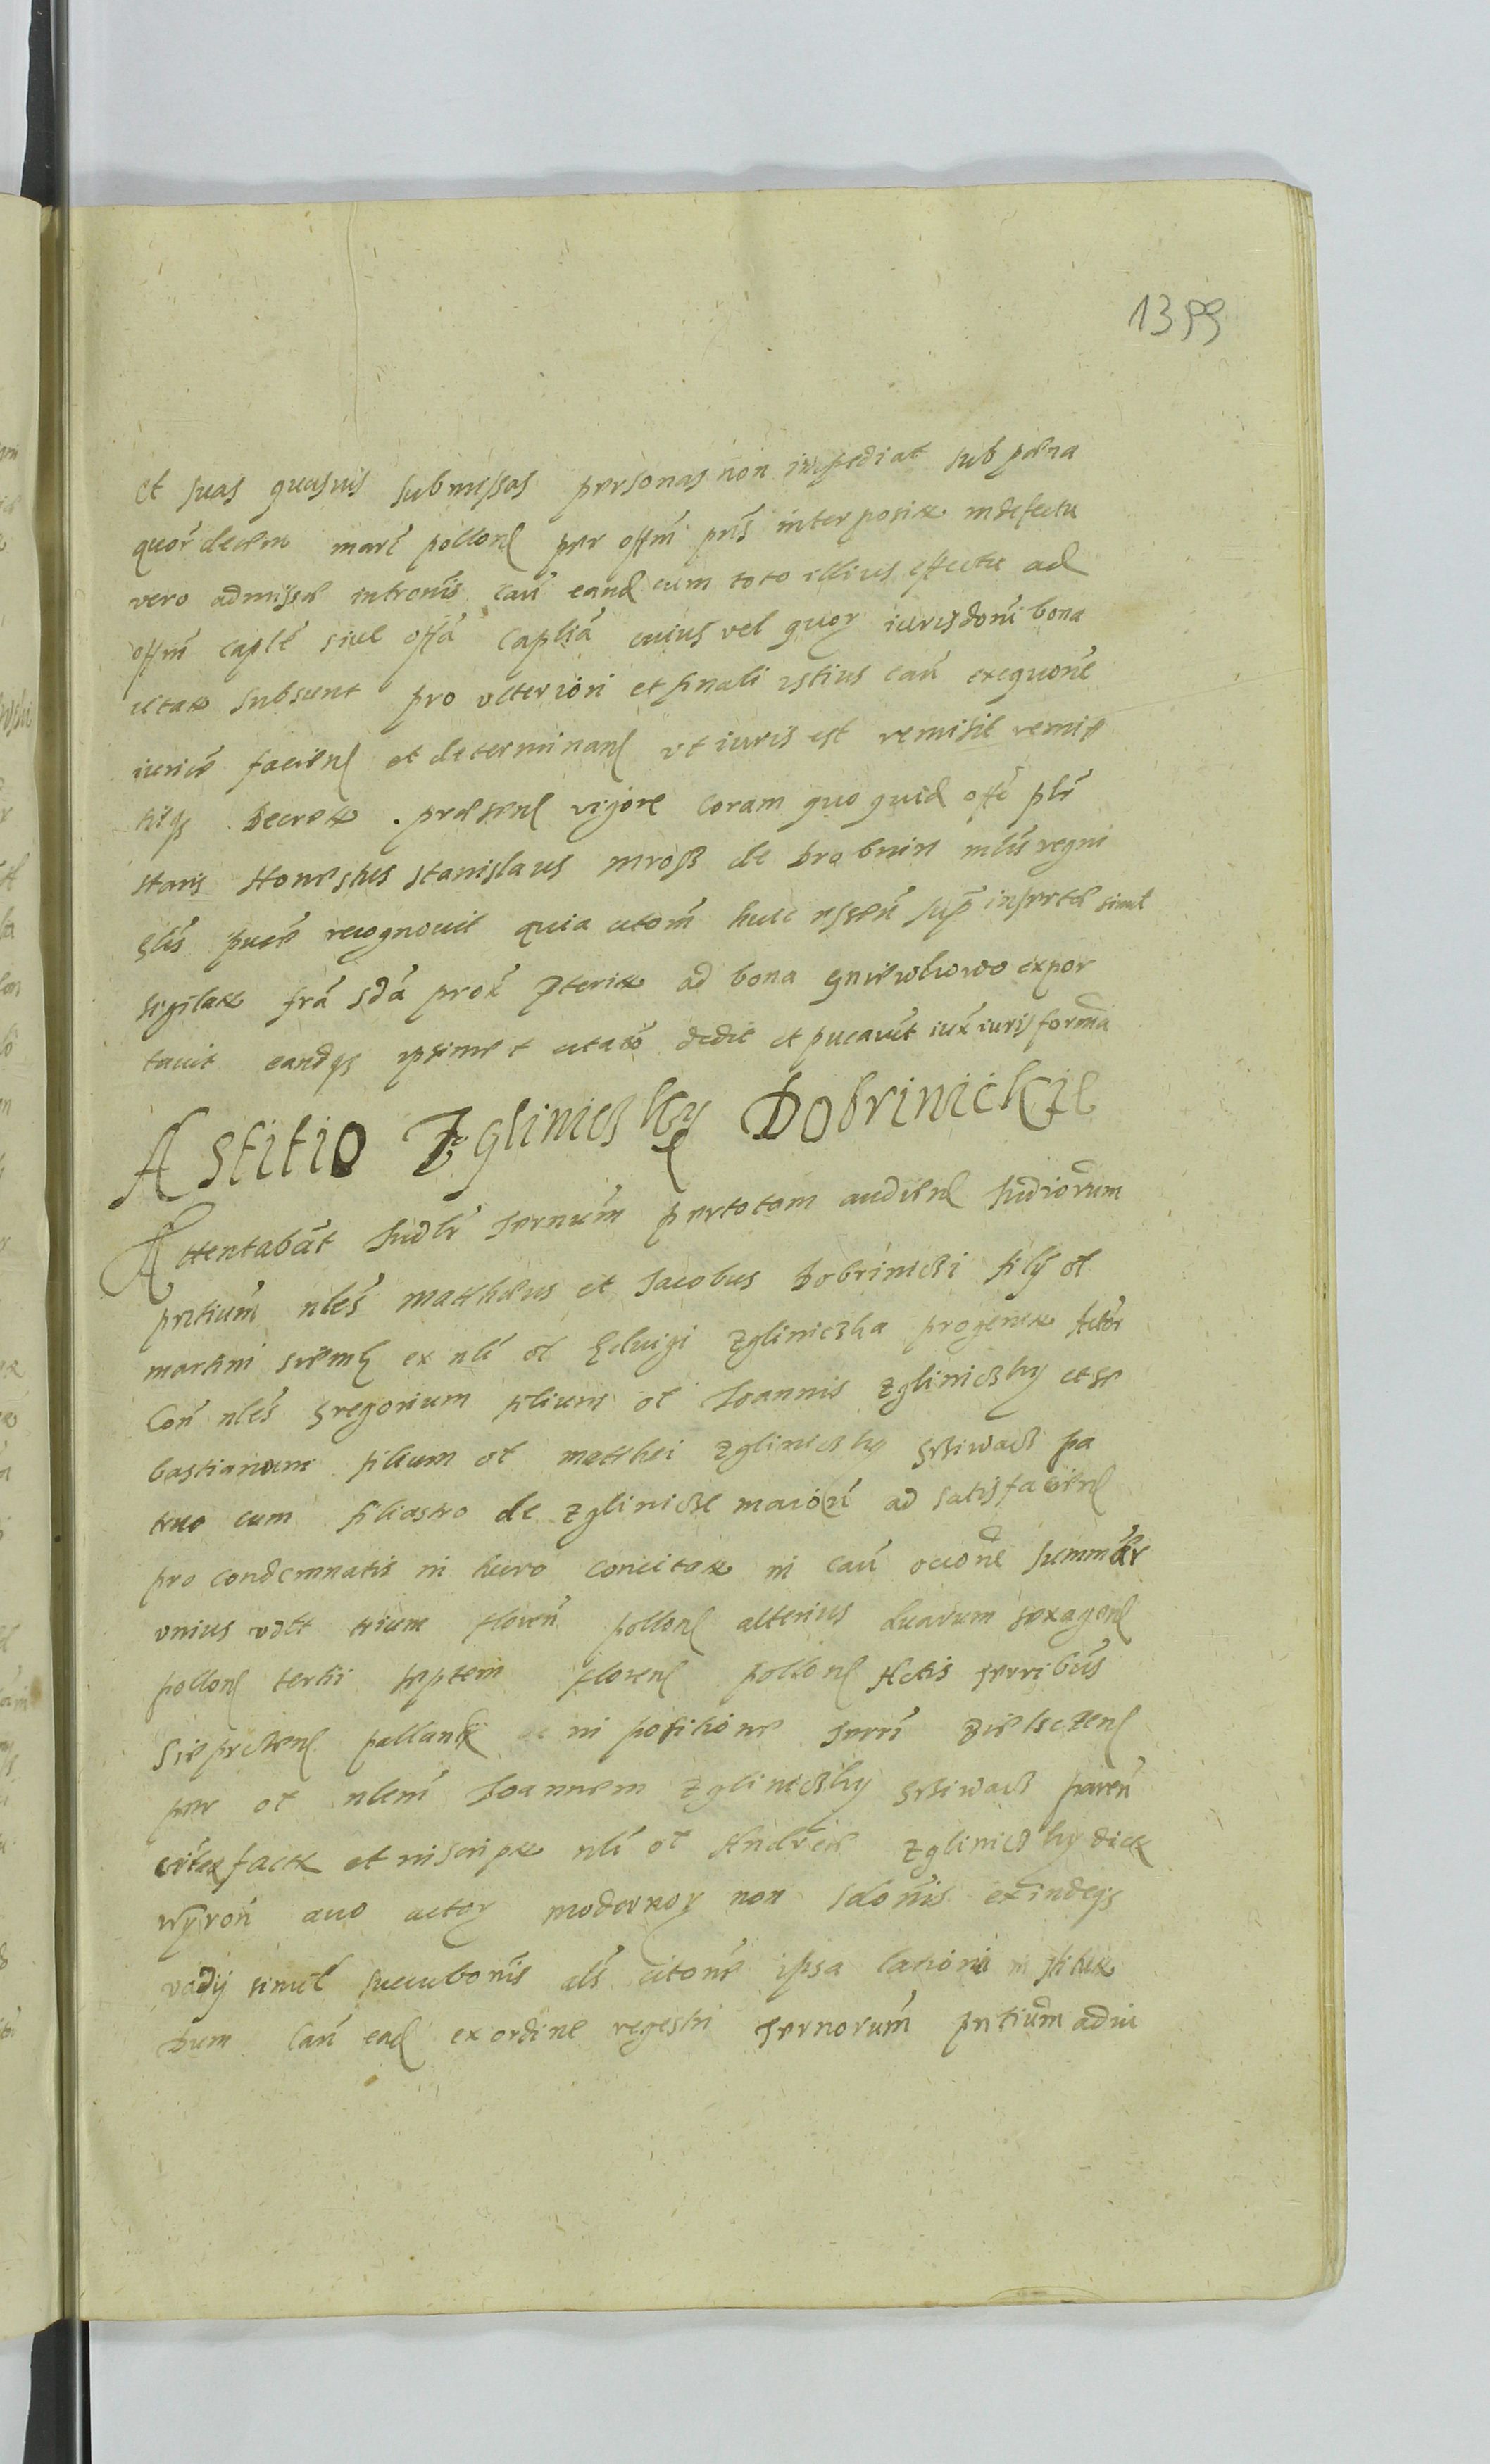 1399
et suas quasuis submissas personas non impediat sub pæna
quor decem marc pollonl per offm pns interposita in defectu
vero admissæ intronis cau eand cum toto illius effectu ad
offm caplē siue offā capliā cuius vel quor iurisdoni bona
citati subsunt pro vlteriori et finali istius cau exequone
iurice faciend et determinand vt iuris est remisit remit
titqz decreti præsentl vigore Coram quo quid offo plr
staris Honestus Stanislaus mross de Drobnin mlis regni
glis pucē recognouit quia citom huic insertū supra insertæ simul
sigilat fra sda prox pterita ad bona Gniewkowo expor
tauit eandqz ipsimet citato dedit et pucauit iux iuris forma
Astitio Zglinicsky Dobrinickie
Attentabāt Judlr ternum per totam audienl Judiorum
pntium nles Matthæus et Jacobus Dobrinicki filij ol
Martini Siemq ex nli ol Hedwigi Zgliniczka progenit Actor
Con nles Gregorium filium ol Joannis Zgliniczky et Se
bastianum filium ol Matthei Zgliniczky Grziwacz pa
truo cum filiastro de Zglinicze maiori ad satisfaciend
pro condemnatis in lucro concitat in cau ocione summar
vnius vdlt trium floren pollonl alterius duarum sexagenl
pollonl tertii septem florenl pollonl Actis terribus
Sieprcensl pallantr in positione terri Bielsczenl
per ol nlem Joannem Zgliniczky Grziwacz paren
citat fact et inscript nli ol Andreæ Zgliniczky dict
Wyron auo actor modernor non sdonis exindeqz
vadij simul succubonis als citone ipsa lationi institut
Dum Cau ead ex ordine regestri ternorum pntium adiu